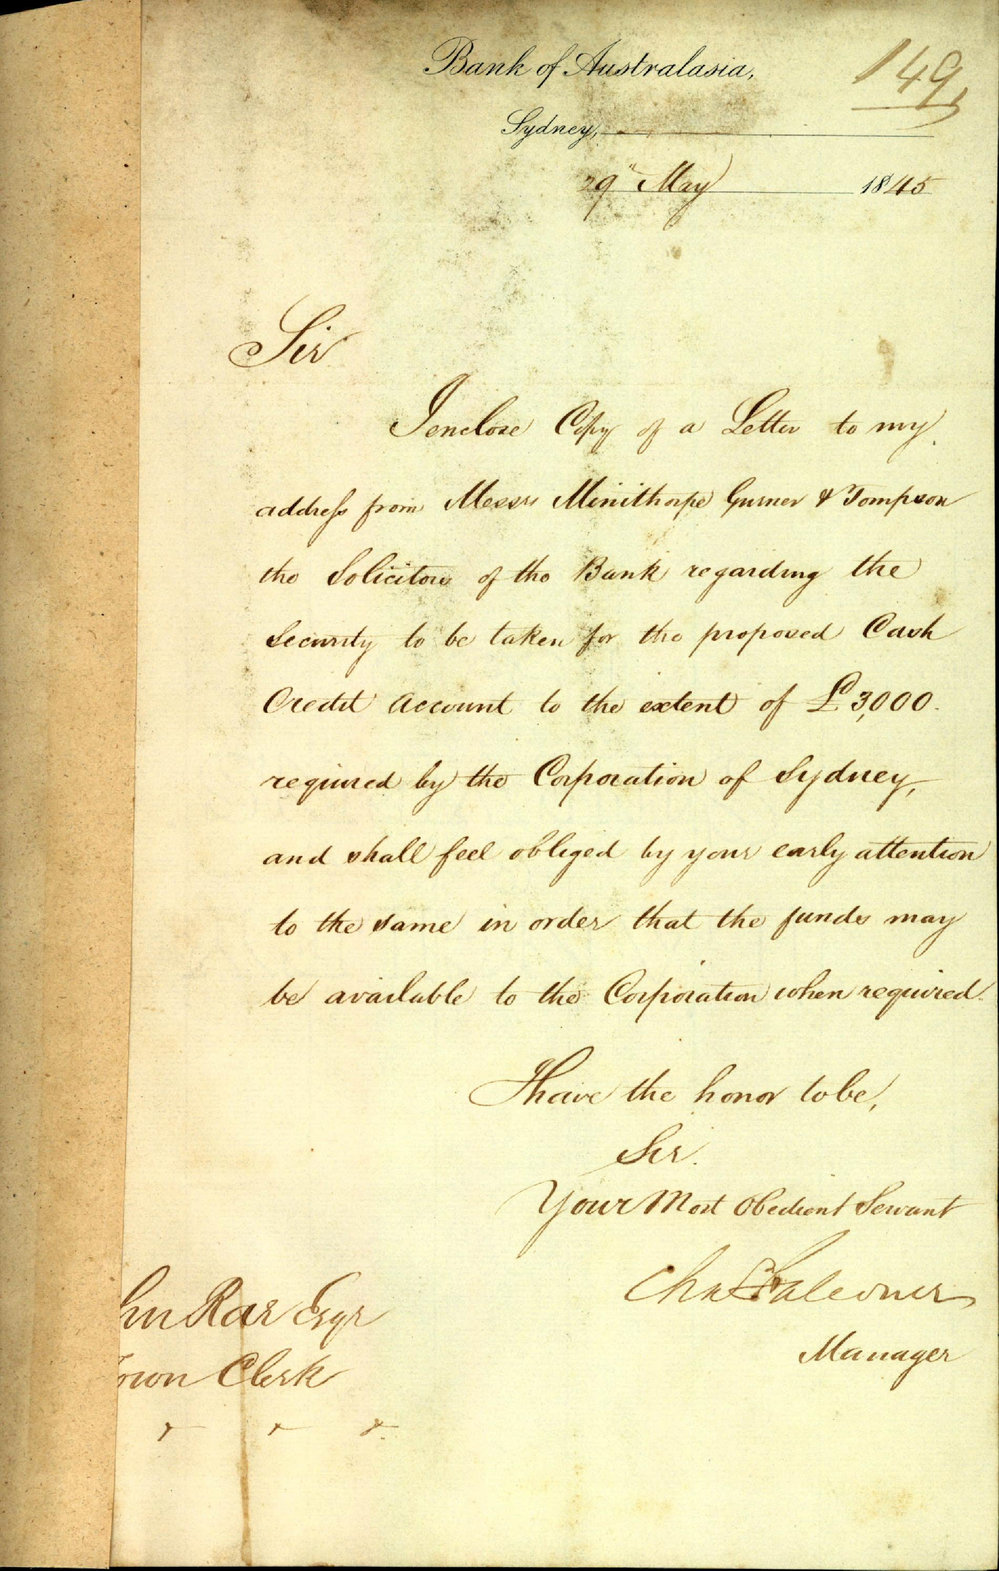 Bank of Australasia,
149
Sydney,
29th May 1845
Sir
I enclose Copy of a Letter to my
address from Messrs Minithorpe Gurner & Tompson
the Solicitors of the Bank regarding the
Security to be taken for the proposed Cash
Credit Account to the extent of £3,000.
required by the Corporation of Sydney,
and shall feel obliged by your early attention
to the same in order that the funds may
be available to the Corporation when required.
I have the honor to be,
Sir.
Your Most Obedient Servant
Falconer
Manager
hn Rae Esqr
own Clerk